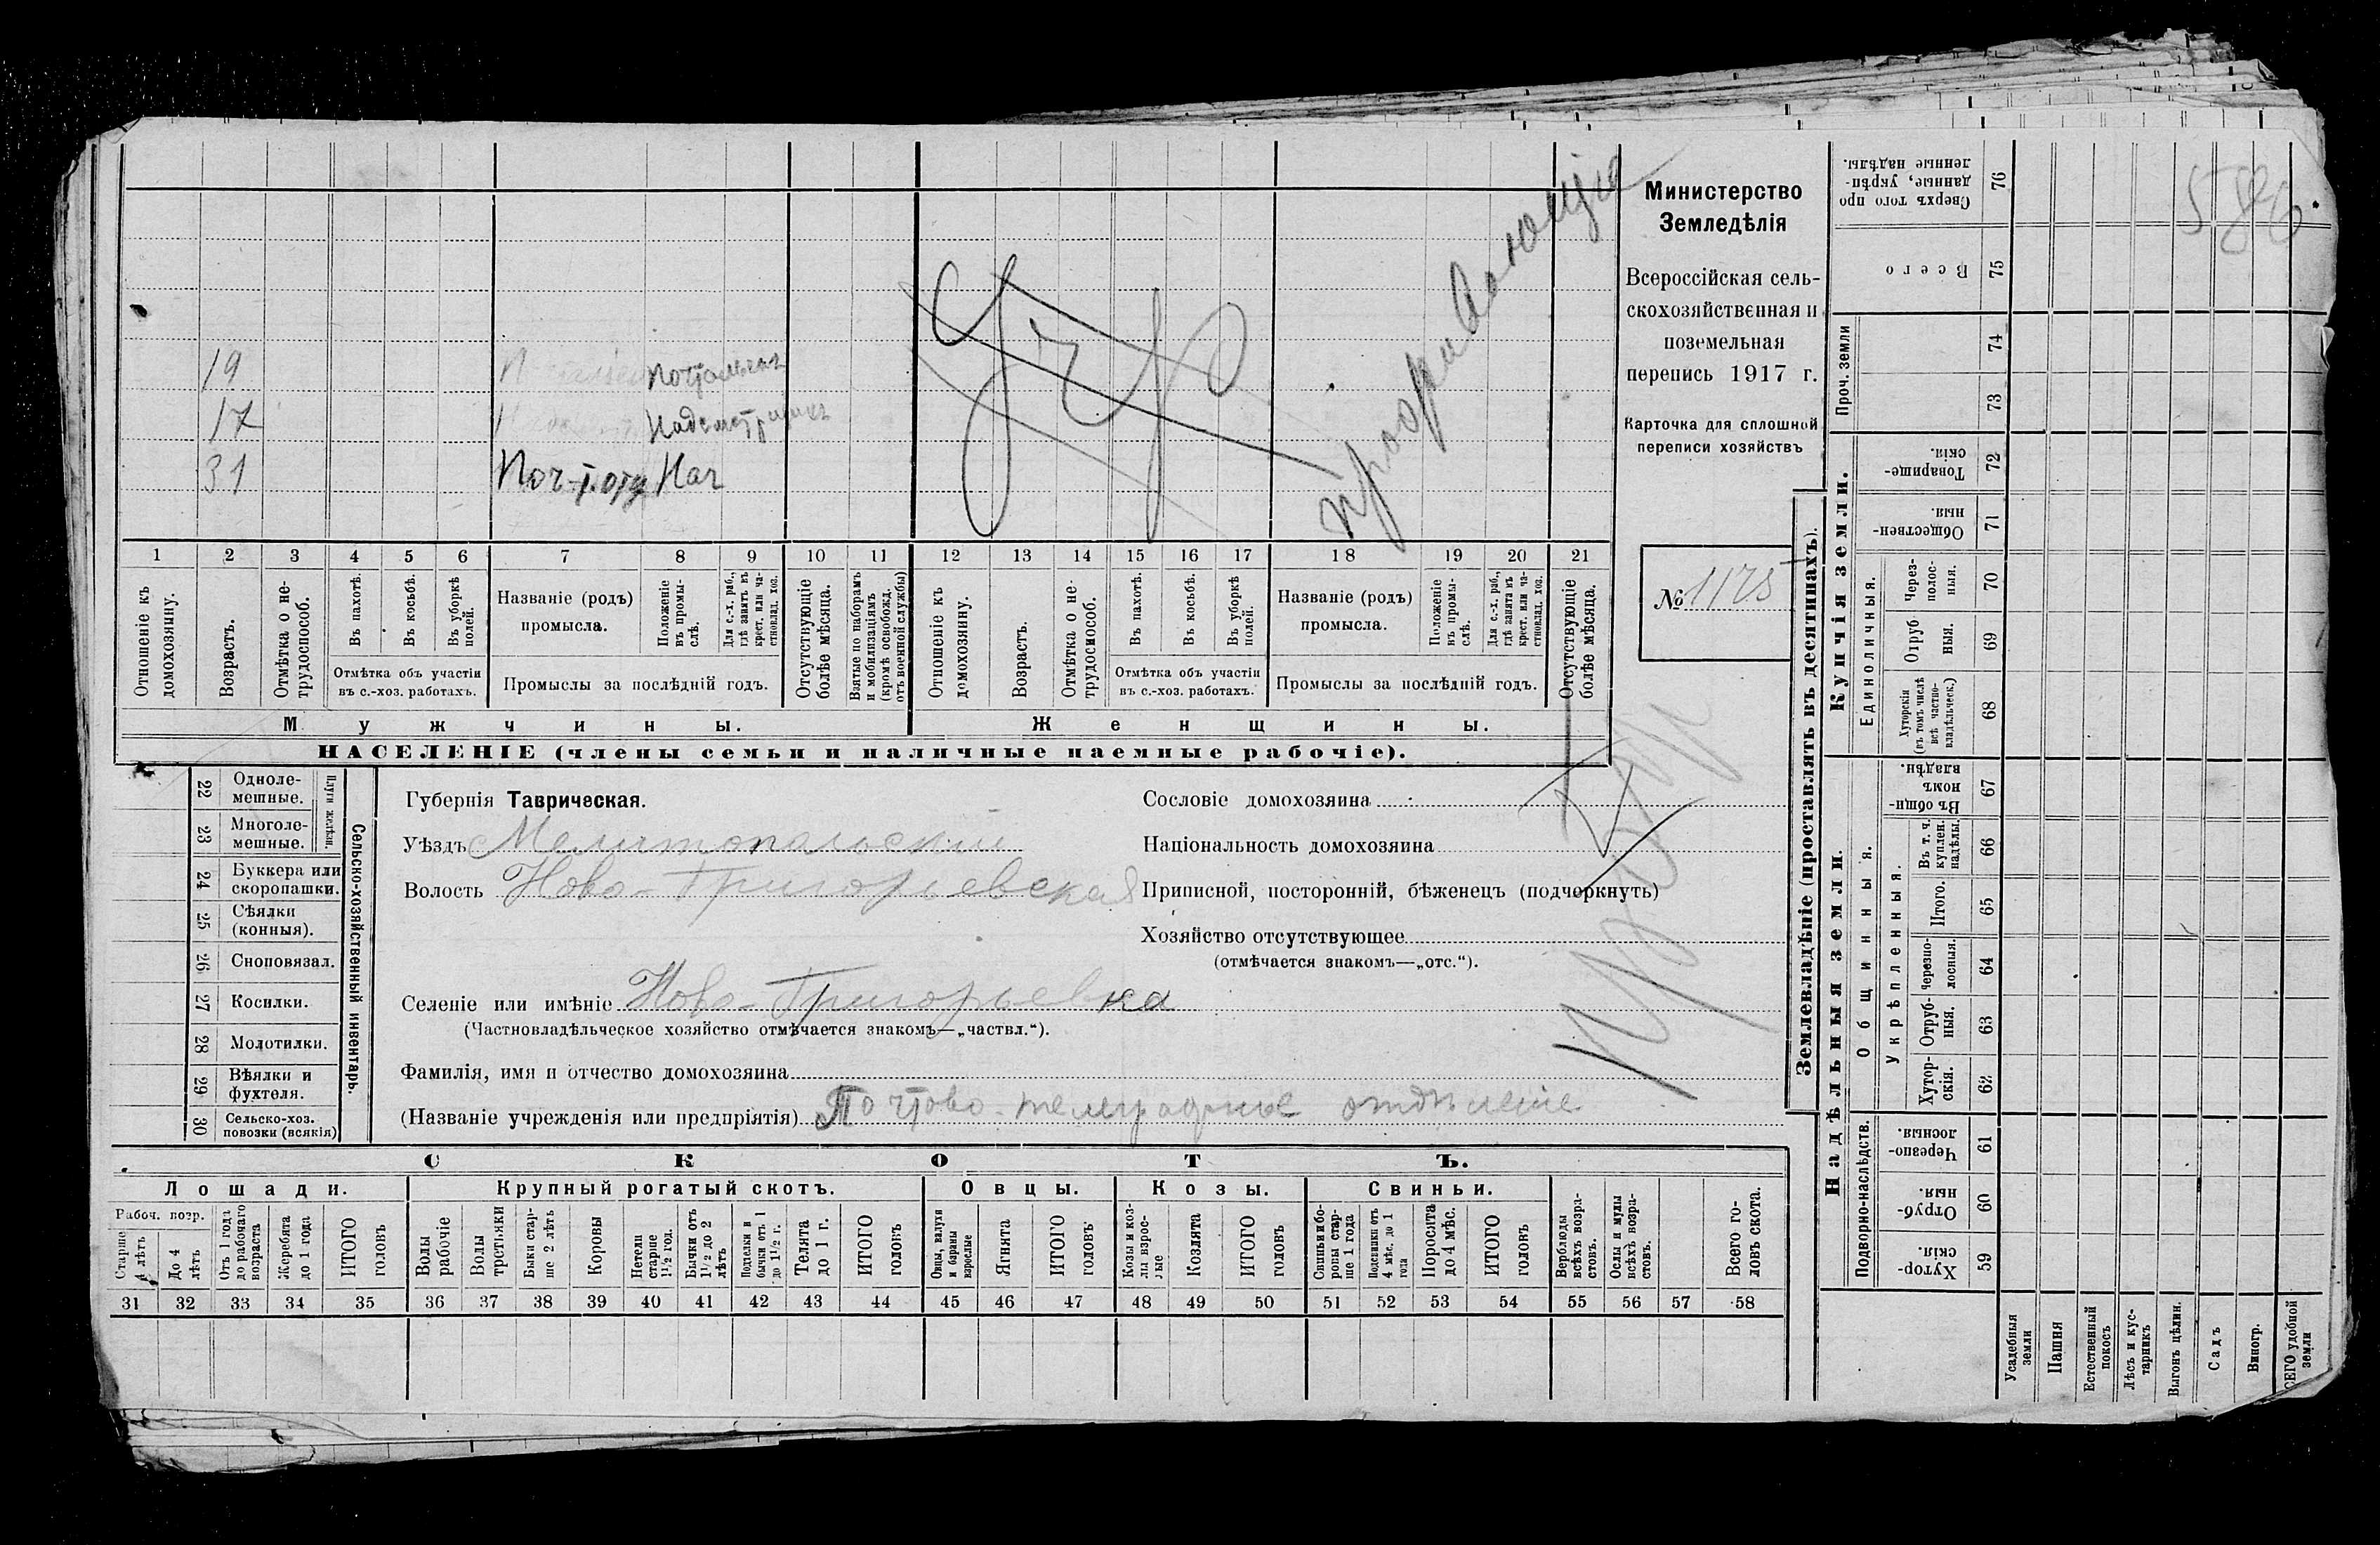 19 почтальон
17
31 Поч-т. отд Нач
1 2 3 4 5 6 7 8 9 10 11 12 13 14 15 16 17 18 19 20 21
Отношеніе къ домохозяину.
Возрастъ.
Отмѣтка о нетрудоспособ.
Въ пахотѣ.
Въ косьбѣ.
Въ уборкѣ полей.
Отмѣтка объ участіи
въ с.-хоз. работахъ.
Названіе (родъ)
промысла.
Положеніе въ промыслѣ.
Для с.-х. раб., гдѣ занятъ въ крест. или частновлад. хоз.
Промыслы за послѣдній годъ.
Отсутствующіе болѣе мѣсяца.
Взятые по наборамъ и мобилизаціямъ (кромѣ освобожд. отъ военной службы)
Отношеніе къ домохозяину.
Возрастъ.
Отмѣтка о нетрудоспособ.
Въ пахотѣ.
Въ косьбѣ.
Въ уборкѣ полей.
Отмѣтка объ участіи
въ с.-хоз. работахъ.
Названіе (родъ)
промысла.
Положеніе въ промыслѣ.
Для с.-х. раб., гдѣ занята въ крест. или частновлад. хоз.
Промыслы за послѣдній годъ.
Отсутствующіе болѣе мѣсяца.
Мужчины.
Женщины.
НАСЕЛЕНІЕ (члены семьи и наличные наемные рабочіе).
Министерство
Земледѣлія
Всероссійская сель-
скохозяйственная и
поземельная
перепись 1917 г.
Карточка для сплошной
переписи хозяйствъ
№ 1175
586
22 Одноле-
мешные.
23 Многоле-
мешные.
Плуги желѣзн.
24 Буккера или
скоропашки.
25 Сѣялки
(конныя).
26 Сноповязал.
27 Косилки.
28 Молотилки.
29 Вѣялки и
фухтеля.
30 Сельско-хоз.
повозки (всякія)
Сельско-хозяйственный инвентарь.
Губернія Таврическая.
Уѣздъ Мелитопольскій
Волость Ново-Григорьевская
Селеніе или имѣніе Ново-Григорьевка
(Частновладѣльческое хозяйство отмѣчается знакомъ—„частвл.“).
Фамилія, имя и отчество домохозяина
(Названіе учрежденія или предпріятія) Почтово-телеграфное отдѣленіе
Сословіе домохозяина
Національность домохозяина
Приписной, посторонній, бѣженецъ (подчеркнуть)
Хозяйство отсутствующее
(отмѣчается знакомъ—„отс.“).
СКОТЪ.
Лошади.
Крупный рогатый скотъ.
Овцы.
Козы.
Свиньи.
Рабоч. возр.
Старше 4 лѣтъ
До 4 лѣтъ
Отъ 1 года до рабочаго возраста
Жеребята до 1 года
ИТОГО головъ
Волы рабочіе
Волы третьяки
Быки старше 2 лѣтъ
Коровы
Нетели старше 1½ год.
Бычки отъ 1½ до 2 лѣтъ
Подтелки и бычки отъ 1 до 1½ г.
Телята до 1 г.
ИТОГО головъ
Овцы, валухи и бараны взрослые
Ягнята
ИТОГО головъ
Козы и козлы взрослые
Козлята
ИТОГО головъ
Свиньи и боровы старше 1 года
Подсвинки отъ 4 мѣс. до 1 года
Поросята до 4 мѣс.
ИТОГО головъ
Верблюды всѣхъ возрастовъ.
Ослы и мулы всѣхъ возрастовъ.
Всего головъ скота.
31 32 33 34 35 36 37 38 39 40 41 42 43 44 45 46 47 48 49 50 51 52 53 54 55 56 57 58
Землевладѣніе (проставлять въ десятинахъ).
Надѣльныя земли.
Купчія земли.
Проч. земли
Подворно-наслѣдств.
Общинныя.
Укрѣпленныя.
Единоличныя.
76 Сверхъ того проданные, укрѣпленные надѣлы.
75 Всего
74
73
72 Товарищескія.
71 Общественныя.
70 Черезполосныя.
69 Отрубныя.
68 Хуторскія (въ томъ числѣ всѣ частновладѣльческ.)
67 Въ общинномъ владѣн.
66 Въ т. ч. куплен. надѣлы.
65 Итого.
64 Черезполосныя.
63 Отрубныя.
62 Хуторскія.
61 Черезполосныя.
60 Отрубныя.
59 Хуторскія.
Усадебныя земли
Пашня
Естественный покосъ
Лѣсъ и кустарникъ
Выгонъ цѣлин.
Садъ
Виногр.
ВСЕГО удобной земли